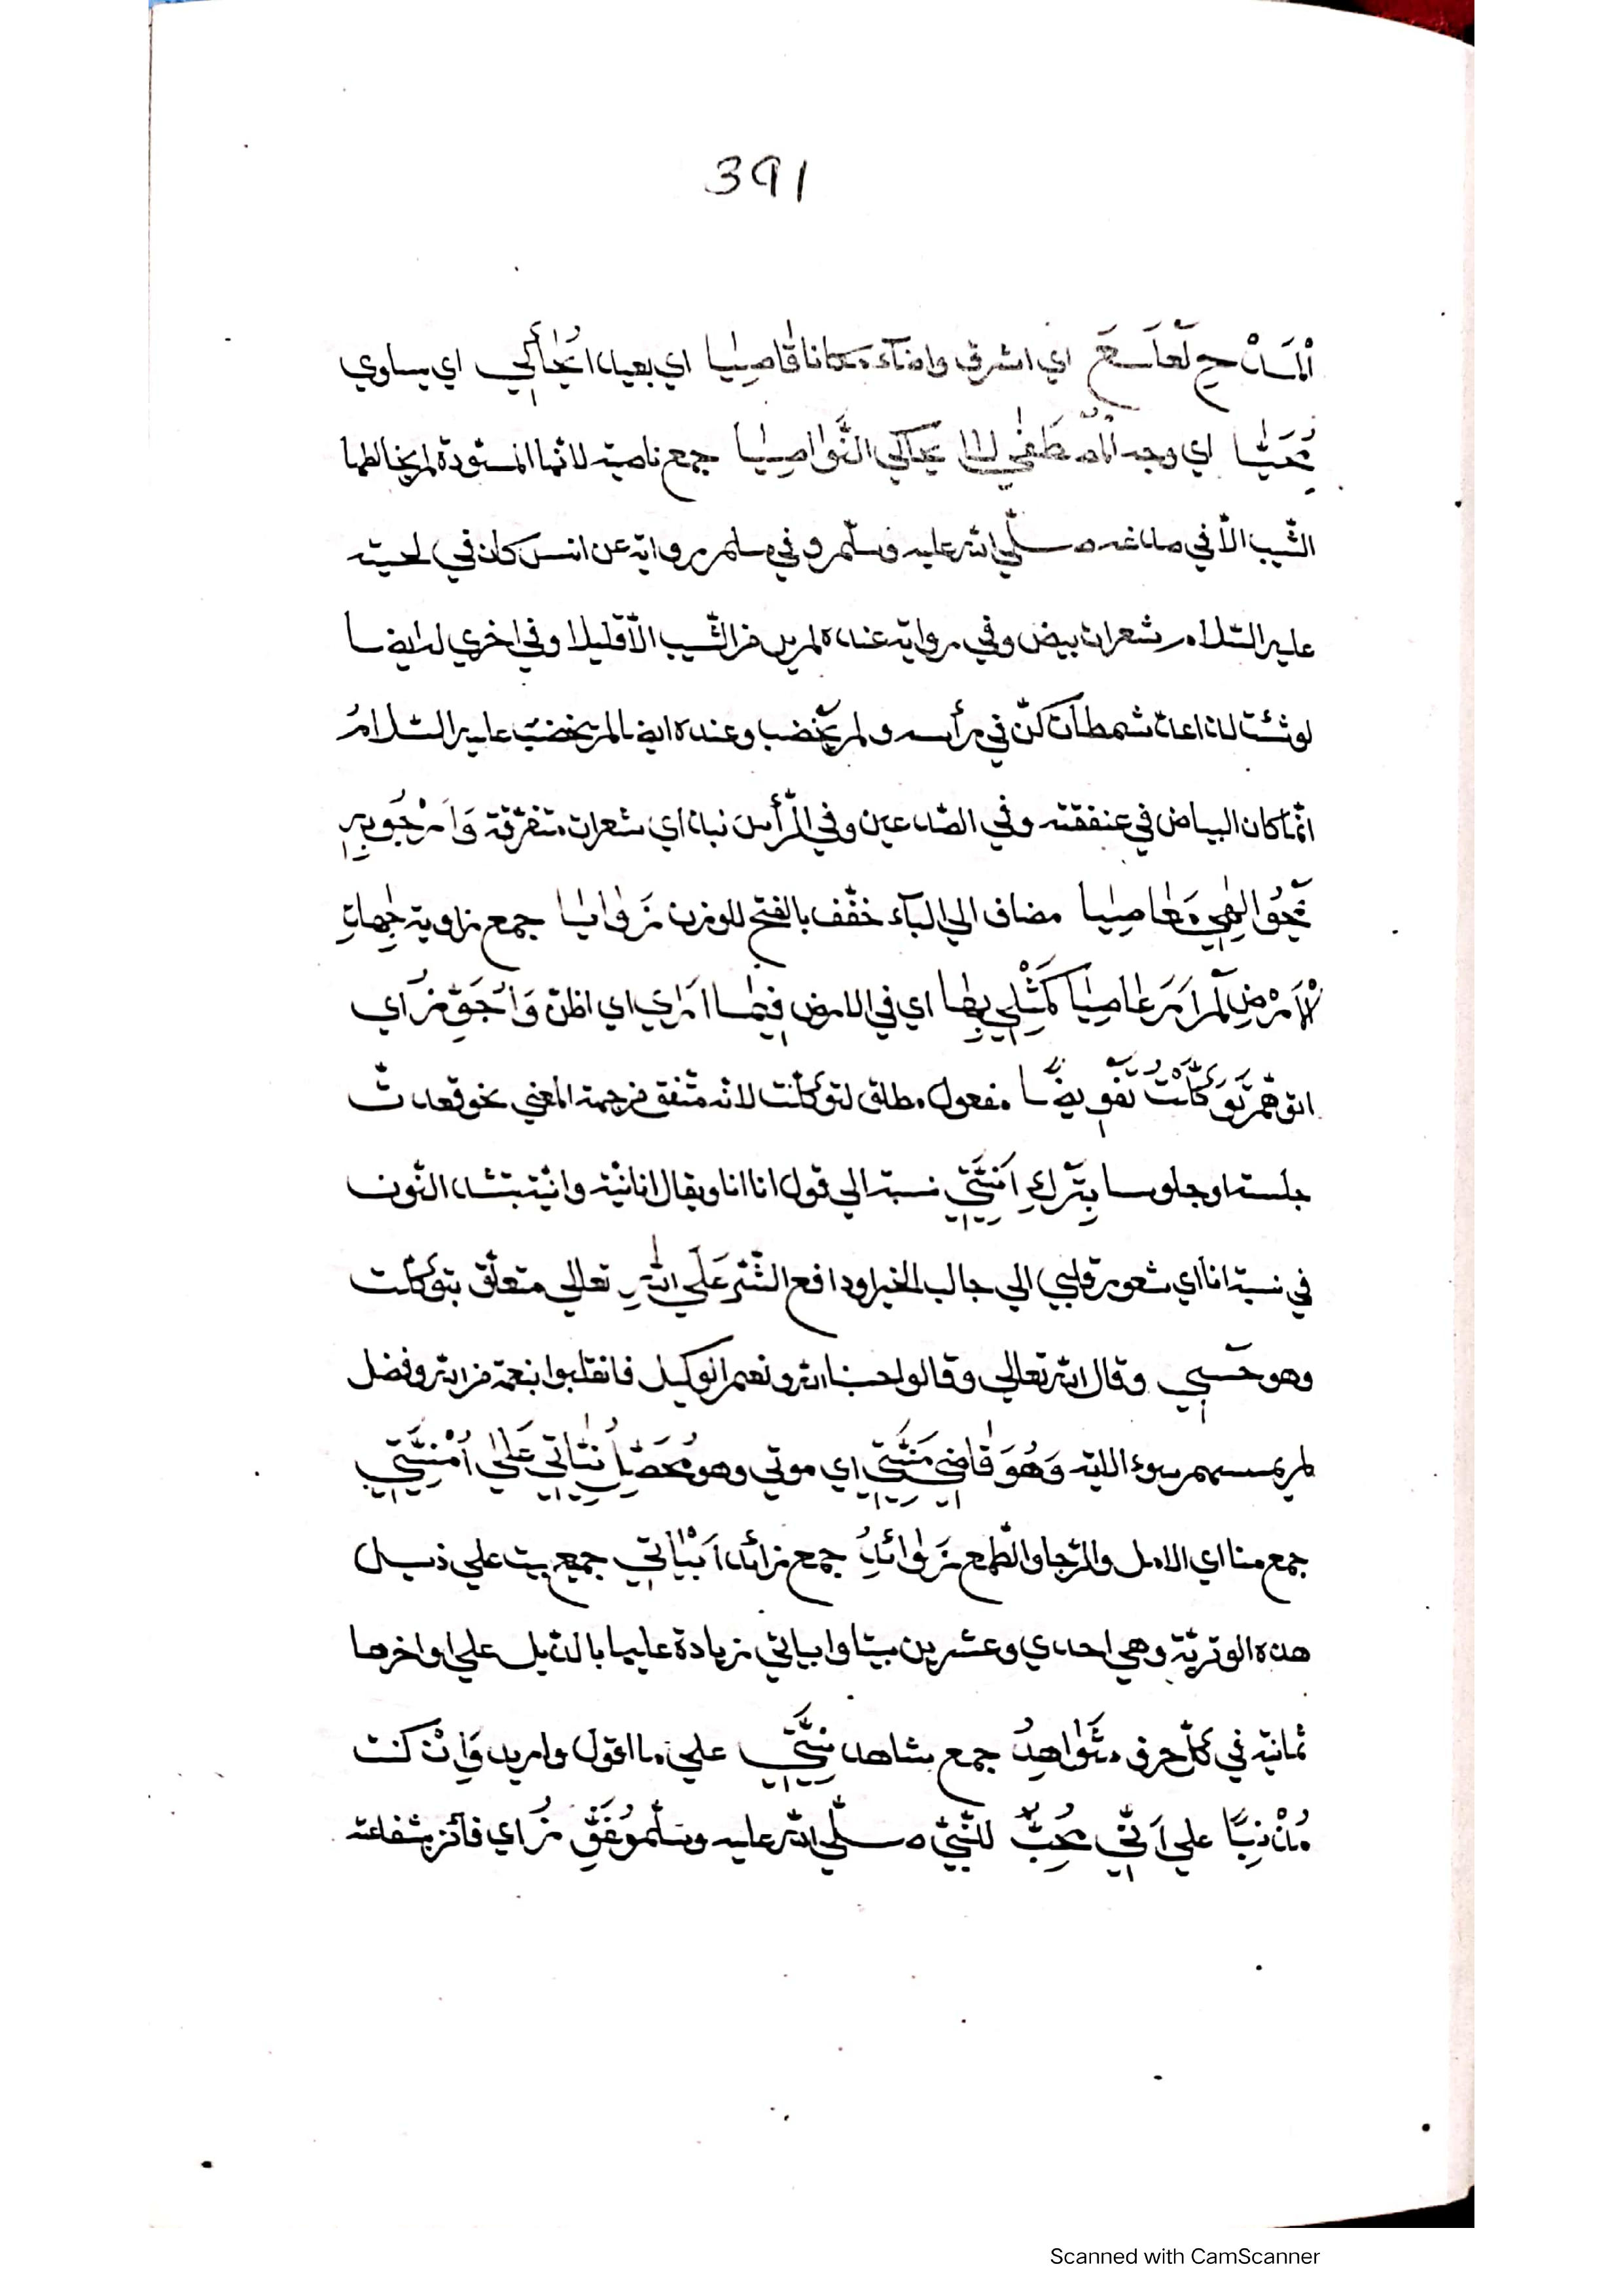 391
اَلْمَدْحِ لَعْلَعَ اي اشرق واضآء مكانا قَاصِيَا اي بعيدا يُحَاكِي اي يساوي
مُحَيَّا اي وجه الْمُصْطَفٰي لَا يُحَاكِي النَّوَاصِيَا جمع ناصية لانها المسودة لم يخالطها
الشّيب الّا في صدغه صلّي الله عليه وسلّم وفي مسلم رواية عن انس كان في لحيته
عليه السّلام شعرات بيض وفي رواية عنده لم ير من الشّيب الّا قليلا وفي اخري له ايضا
لو شئت ان اعدّ شمطات كنّ في رأسه ولم يخضب وعنده ايضا لم يخضب عليه السّلامُ
انّما كان البياض في عنفقته وفي الصّدغين وفي الرّأس نبذ اي شعرات متفرّقة وَاَرْجُو بِهِ
مَحْوَ اِلٰهِي مَعَاصِيَا مضاف الي اليآء خفّف بالفتح للوزن زَوَايَا جمع زاوية جِهَاتِ
الْاَرْضِ لَمْ اَرَ عَاصِيًا كَمِثْلِي بِهَا اي في الارض فِيمَا اَرٰي اي اظنّ وَاُجَوِّزُ اي
اتوهّم تَوَكَّلْتُ تَفْوِيضًا مفعول مطلق لتوكّلت لانه متّفق من جهة المعني نحو قعدت
جلسة او جلوسا بِتَرْكِ اَنِيَّتِي نسبة الي قول انا انا ويقال انانيّة وانّيّة بتشد النّون
في نسبة انا اي شعور قلبي الي جالب الخير ودافع الشّرّ عَلَي اللهِ تعالي متعلّق بتوكّلت
وهو حَسْبِي وقال الله تعالي وقالوا حسبنا الله ونعم الوكيل فانقلبوا بنعمة من الله وفضل
لم يمسسهم سوء الاية وَهُوَ قَاضِي مَنِيَّتِي اي موتي وهو مُحَصِّلُ نِيَّاتِي عَلٰي اُمْنِيَّتِي
جمع منا اي الامل والرّجا والطّمع زَوَائِدُ جمع زائد اَبْيَاتِي جمع بيت علي ذيل
هذه الوتريّة وهي احدي وعشرين بيتا وابياتي زيادة عليها بالذّيل علي اواخرها
ثمانية في كلّ حرف شَوَاهِدُ جمع شاهد نِيَّتِي علي ما اقول واريد وَاِنْ كنت
مُذْنِبًا علي اَنِّي مُحِبٌّ للنّبيّ صلّي الله عليه وسلّم مُوَفَّزُ اي فآئز بشفاعته
Scanned with CamScanner